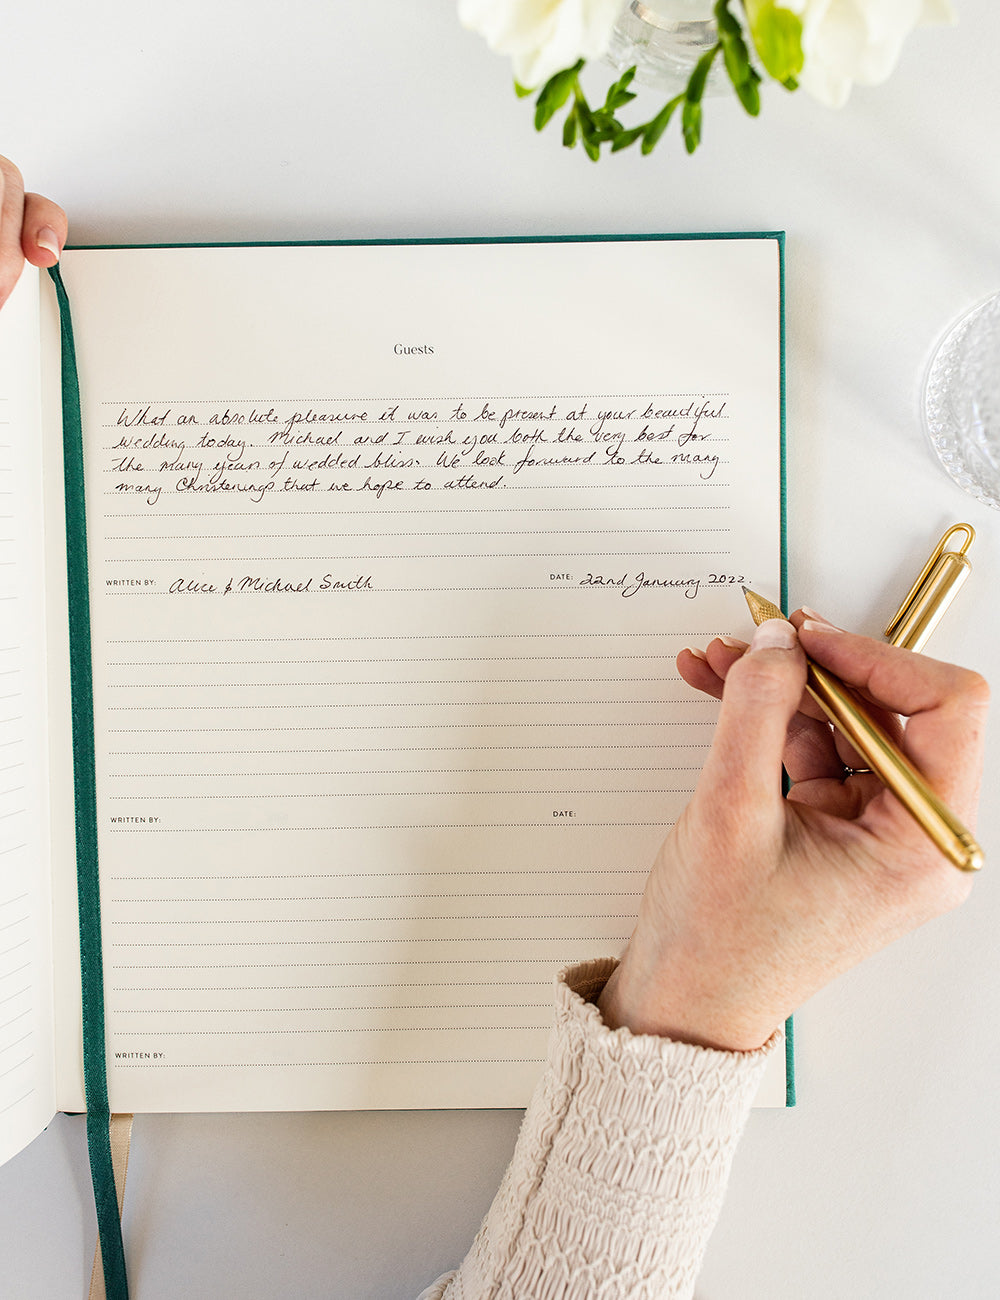 Guests
What an absolute pleasure it was to be present at your beautiful
wedding today. Michael and I wish you both the very best for
the many years of wedded bliss. We look forward to the many
many Christenings that we hope to attend.
WRITTEN BY: Alice & Michael Smith DATE: 22nd January 2022.
WRITTEN BY: DATE:
WRITTEN BY: